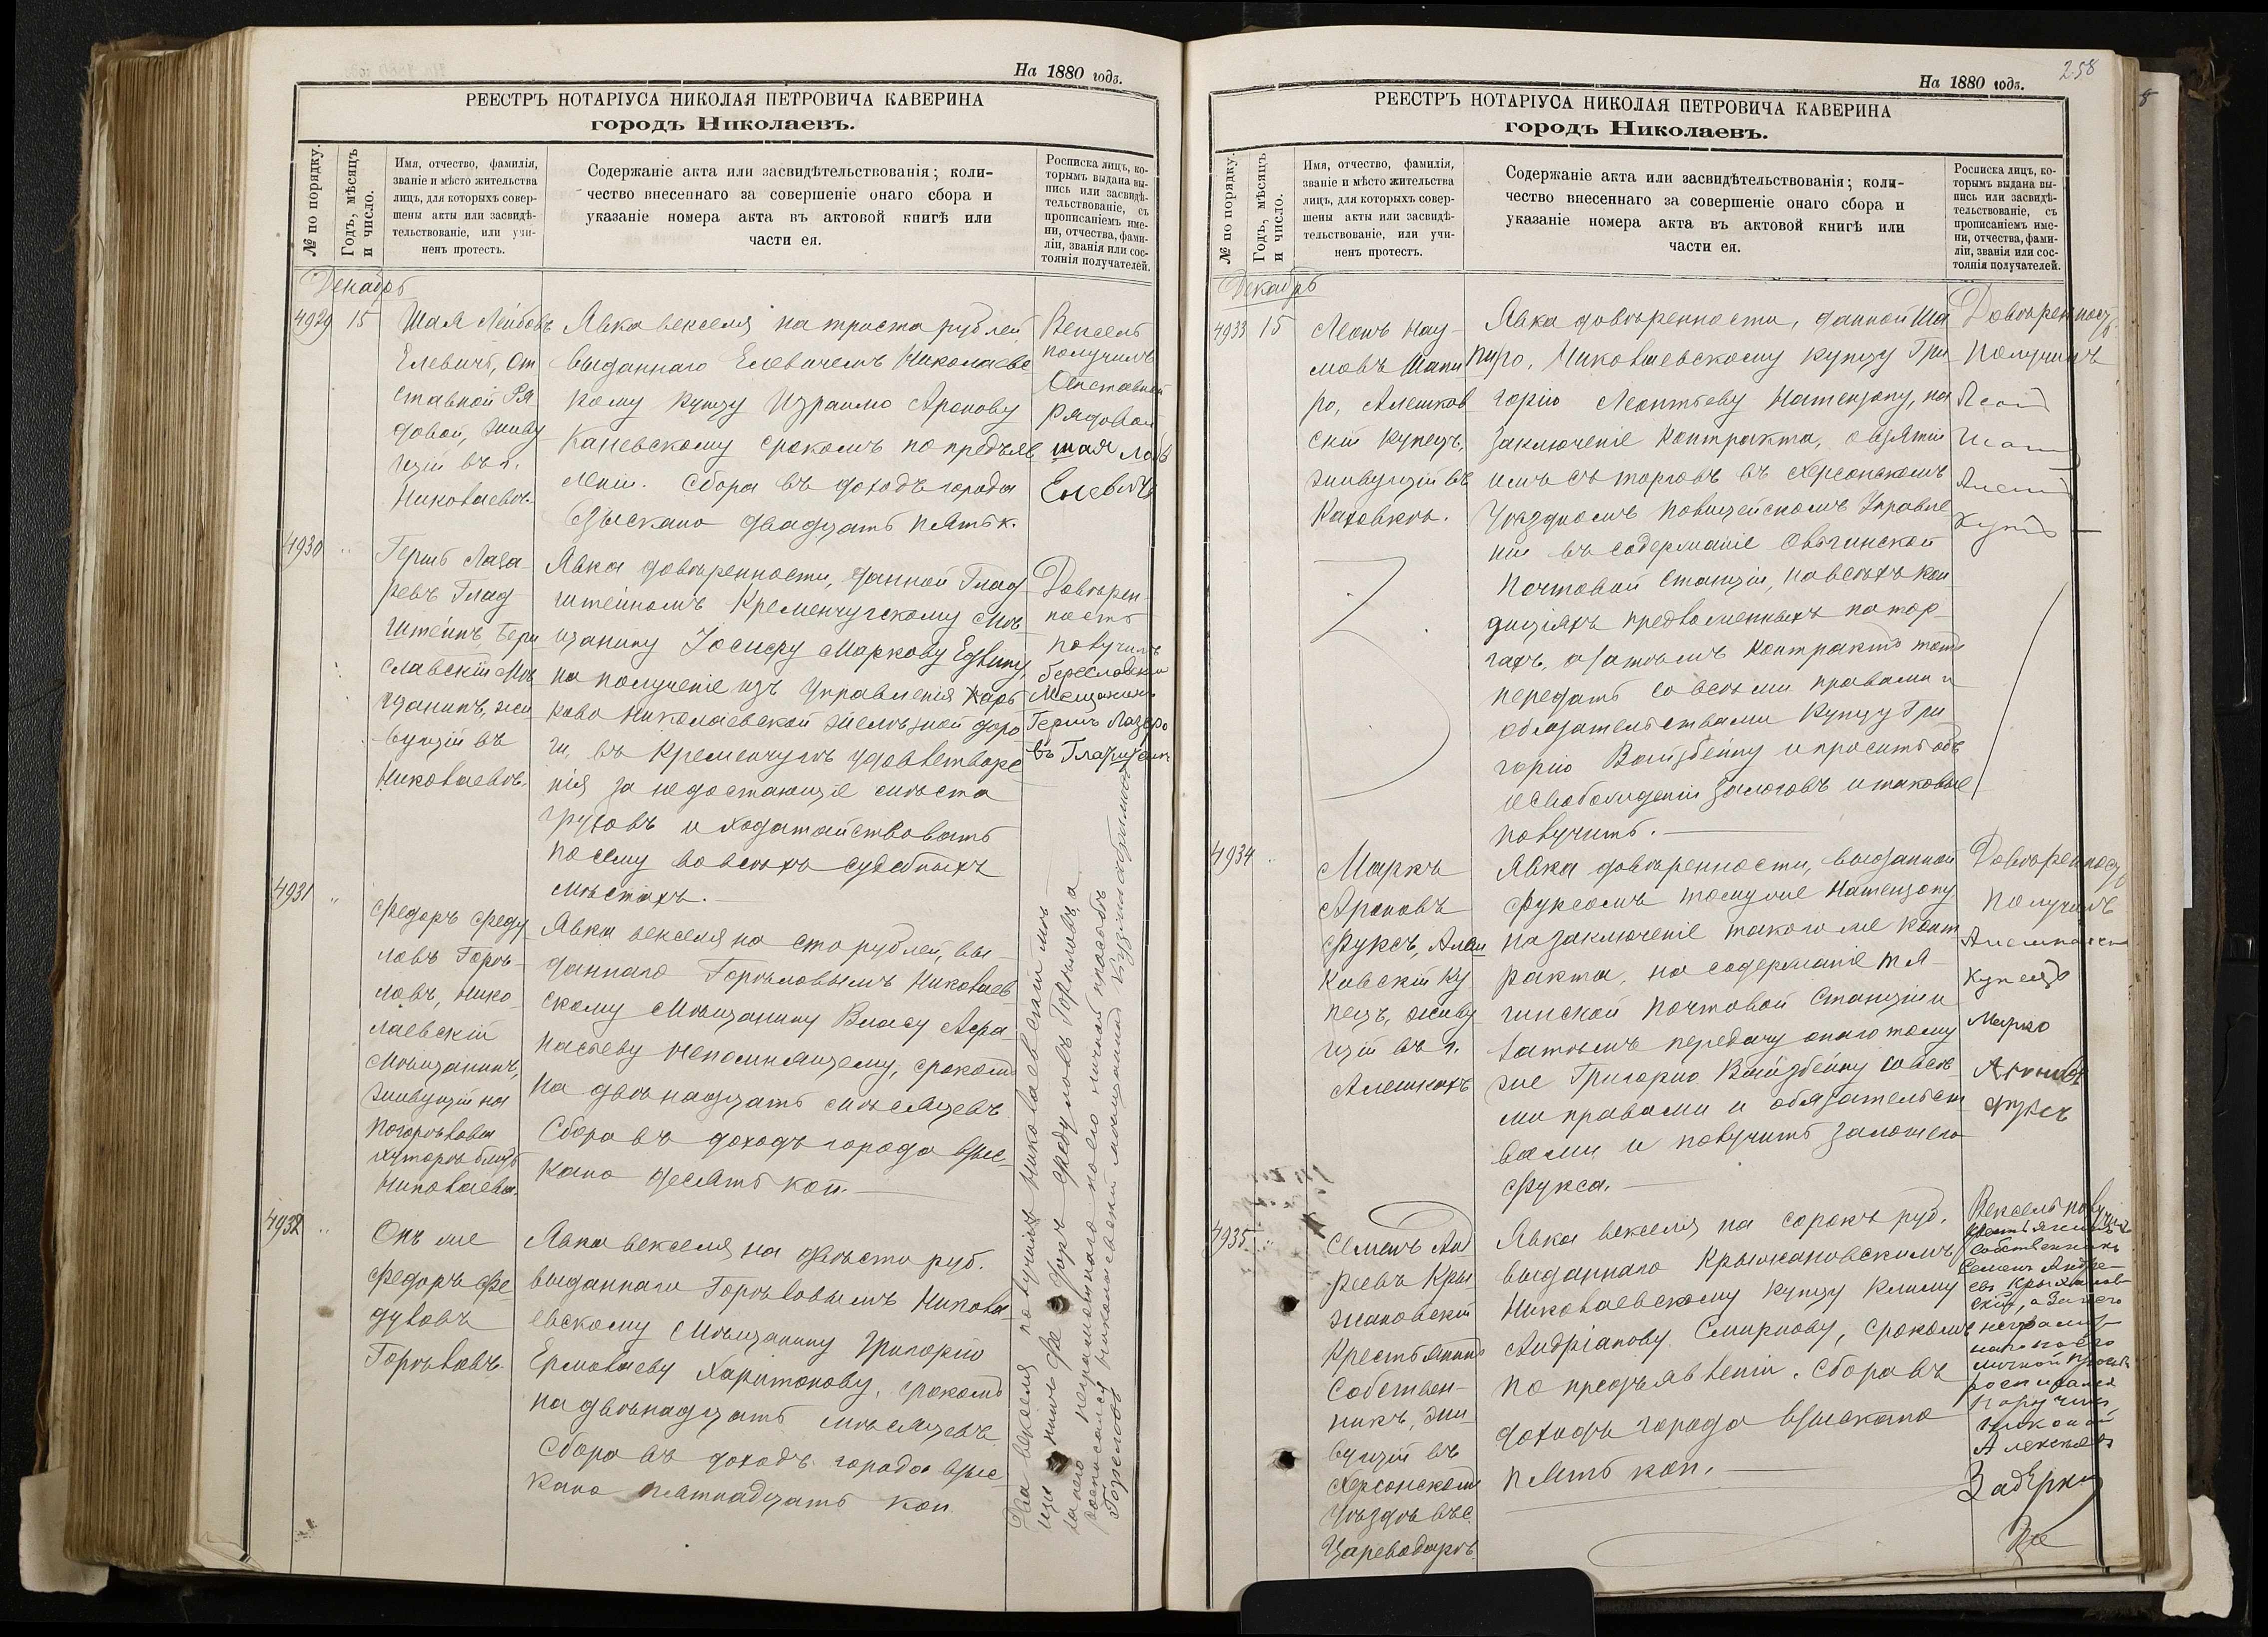 На 1880 годъ.
РЕЕСТРЪ НОТАРІУСА НИКОЛАЯ ПЕТРОВИЧА КАВЕРИНА
городъ Николаевъ.
№ по порядку.
Годъ, мѣсяцъ
и число.
Имя, отчество, фамилія,
званіе и мѣсто жительства
лицъ, для которыхъ совер-
шены акты или засвидѣ-
тельствованіе, или учи-
ненъ протестъ.
Содержаніе акта или засвидѣтельствованія; коли-
чество внесеннаго за совершеніе онаго сбора и
указаніе номера акта въ актовой книгѣ или
части ея.
Росписка лицъ, ко-
торымъ выдана вы-
пись или засвидѣ-
тельствованіе, съ
прописаніемъ име-
ни, отчества, фами-
ліи, званія или сос-
тоянія получателей.
Декабрь
4929 15
Шая Лейбовъ
Елевичъ, От
ставной Ря
довой, живу
щій въ г.
Николаевѣ.
Явка векселя на триста рублей,
выданнаго Елевичемъ Николаевс
кому купцу Израилю Аронову
Каневскому срокомъ по предъяв
леніи. Сбора въ доходъ города
взыскано двадцать пять к.
Вексель
получилъ
Отставной
рядовой
шая
Елевичъ
4930 "
Герш Лаза
ревъ Глад
штейнъ Бери
славскій Мѣ
щанинъ, жи
вущій въ
Николаевѣ.
Явка довѣренности, данной Глад
штейномъ Кременчугскому Мѣ
щанину Іосифу Маркову Едвину,
на полученіе изъ Управленія Харь
ково Николаевской желѣзной доро
ги, въ Кременчугѣ удовлетворе
нія за недостающіе мѣста
грузовъ и ходатайствовать
по сему во всѣхъ судебныхъ
мѣстахъ.
Довѣрен
ность
получилъ
Мещанинъ
Герш Лазаро
въ
4931 "
Федоръ Феду
ловъ Горѣ-
ловъ, Нико
лаевскій
Мѣщанинъ,
живущій на
Погорѣловы
хуторѣ близъ
Николаева.
Явка векселя на сто рублей, вы
даннаго Горѣловымъ Николаев
скому Мѣщанину Власу Афа
насьеву Непомнящему, срокомъ
на двѣнадцать мѣсяцевъ
Сбора въ доходъ города взыс
кано десять коп.
4932 "
Онъ же
Федоръ Фе
дуловъ
Горѣловъ.
Явка векселя на двѣсти руб.
выданнаго Горѣловымъ Никола
евскому Мѣщанину Григорію
Ермолаеву Харитонову, срокомъ
на двѣнадцать мѣсяцевъ
Сбора въ доходъ города взыс
кано пятнадцать коп.
Два векселя получилъ Николаевский мѣ
щанинъ Федоръ Федуловъ Горѣловъ, а
за него неграмотного по его личной просьбѣ
росписался николаевский мѣщанинъ Кузьма
Горелов
На 1880 годъ.
258
РЕЕСТРЪ НОТАРІУСА НИКОЛАЯ ПЕТРОВИЧА КАВЕРИНА
городъ Николаевъ.
№ по порядку.
Годъ, мѣсяцъ
и число.
Имя, отчество, фамилія,
званіе и мѣсто жительства
лицъ, для которыхъ совер-
шены акты или засвидѣ-
тельствованіе, или учи-
ненъ протестъ.
Содержаніе акта или засвидѣтельствованія; коли-
чество внесеннаго за совершеніе онаго сбора и
указаніе номера акта въ актовой книгѣ или
части ея.
Росписка лицъ, ко-
торымъ выдана вы-
пись или засвидѣ-
тельствованіе, съ
прописаніемъ име-
ни, отчества, фами-
ліи, званія или сос-
тоянія получателей.
Декабрь
4933 15
Леонъ Нау-
мовъ Шапи
ро, Алешков
скій купецъ,
живущій въ
Каховкѣ.
Явка довѣренности, данной Ша
пиро, Николаевскому купцу Гри
горію Леонтьеву Натензону, на
заключеніе контракта, о взятіи
имъ съ торговъ въ Херсонскомъ
Уѣздномъ Полицейскомъ Управле
ніи въ содержаніе
Почтовой Станціи, на всѣхъ кон
диціяхъ предложенныхъ на тор
гахъ, а затѣмъ контрактъ тотъ
передать со всѣми правами и
обязательствами Купцу Гри
горію Вайзбейну и просить объ
освобожденіи залоговъ и таковые
получить.
Довѣренность
получилъ
4934 "
Маркъ
Ароновъ
Фуксъ, Алеш
ковскій Ку
пецъ, живу
щій въ г.
Алешкахъ
Явка довѣренности, выданной
Фуксомъ тому же Натензону
на заключеніе такого же конт
ракта, на содержаніе Тя
гинской Почтовой Станціи и
затѣмъ передачу онаго тому
же Григорію Вайзбейну со всѣ
ми правами и обязательст
вами и получить залоги его
Фукса.
Довѣренность
получилъ
Купецъ
Марко
Фуксъ
4935 "
Семенъ Анд
реевъ Кры
жановскій
Крестьянинъ
Собствен-
никъ, жи
вущій въ
Херсонскомъ
Уѣздѣ въ с.
Цареводарѣ.
Явка векселя на сорокъ руб.
выданнаго Крыжановскимъ
Николаевскому купцу Климу
Андріанову Смирнову, срокомъ
по предъявленіи. Сбора въ
доходъ города взыскано
пять коп.
Вексель получилъ
крестьянинъ
собственникъ
Семенъ Андре-
евъ Крыжанов-
скій, а за него
неграмот-
наго по его
личной просьбѣ
росписался